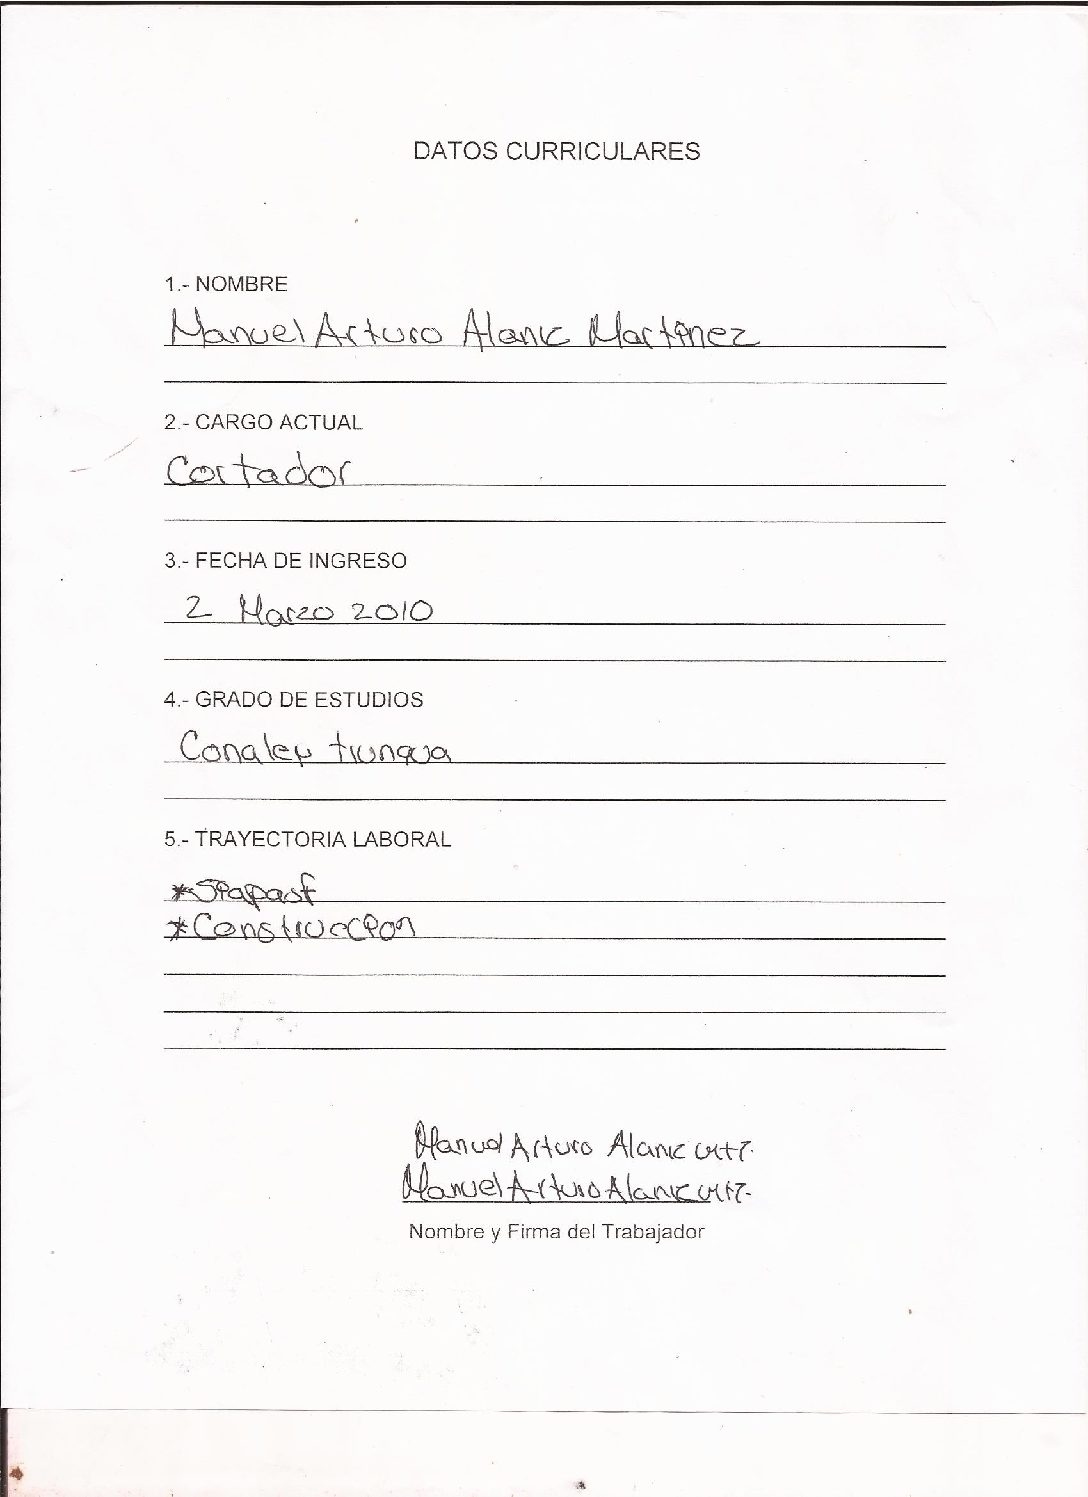 DATOS CURRICULARES
1.- NOMBRE
Manuel Arturo Alaniz Martinez
2.- CARGO ACTUAL
Cortador
3.- FECHA DE INGRESO
2 Marzo 2010
4.- GRADO DE ESTUDIOS
Conalep trunqua
5.- TRAYECTORIA LABORAL
*Siapasf
*Construccion
Manuel Arturo Alaniz Mtz.
Manuel Arturo Alaniz Mtz.
Nombre y Firma del Trabajador